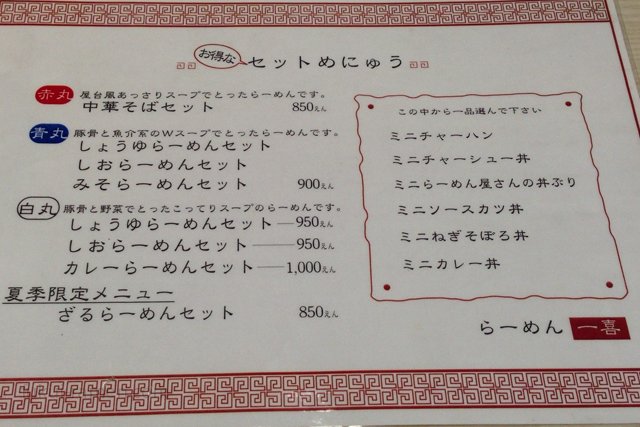 お得な
セットめにゅう
赤丸 屋台風あっさりスープでとったらーめんです。
中華そばセット 850えん
青丸 豚骨と魚介系のWスープでとったらーめんです。
しょうゆらーめんセット
しおらーめんセット
みそらーめんセット 900えん
白丸 豚骨と野菜でとったこってりスープのらーめんです。
しょうゆらーめんセット──950えん
しおらーめんセット──950えん
カレーらーめんセット──1,000えん
夏季限定メニュー
ざるらーめんセット 850えん
この中から一品選んで下さい
ミニチャーハン
ミニチャーシュー丼
ミニらーめん屋さんの丼ぶり
ミニソースカツ丼
ミニねぎそぼろ丼
ミニカレー丼
らーめん 一喜